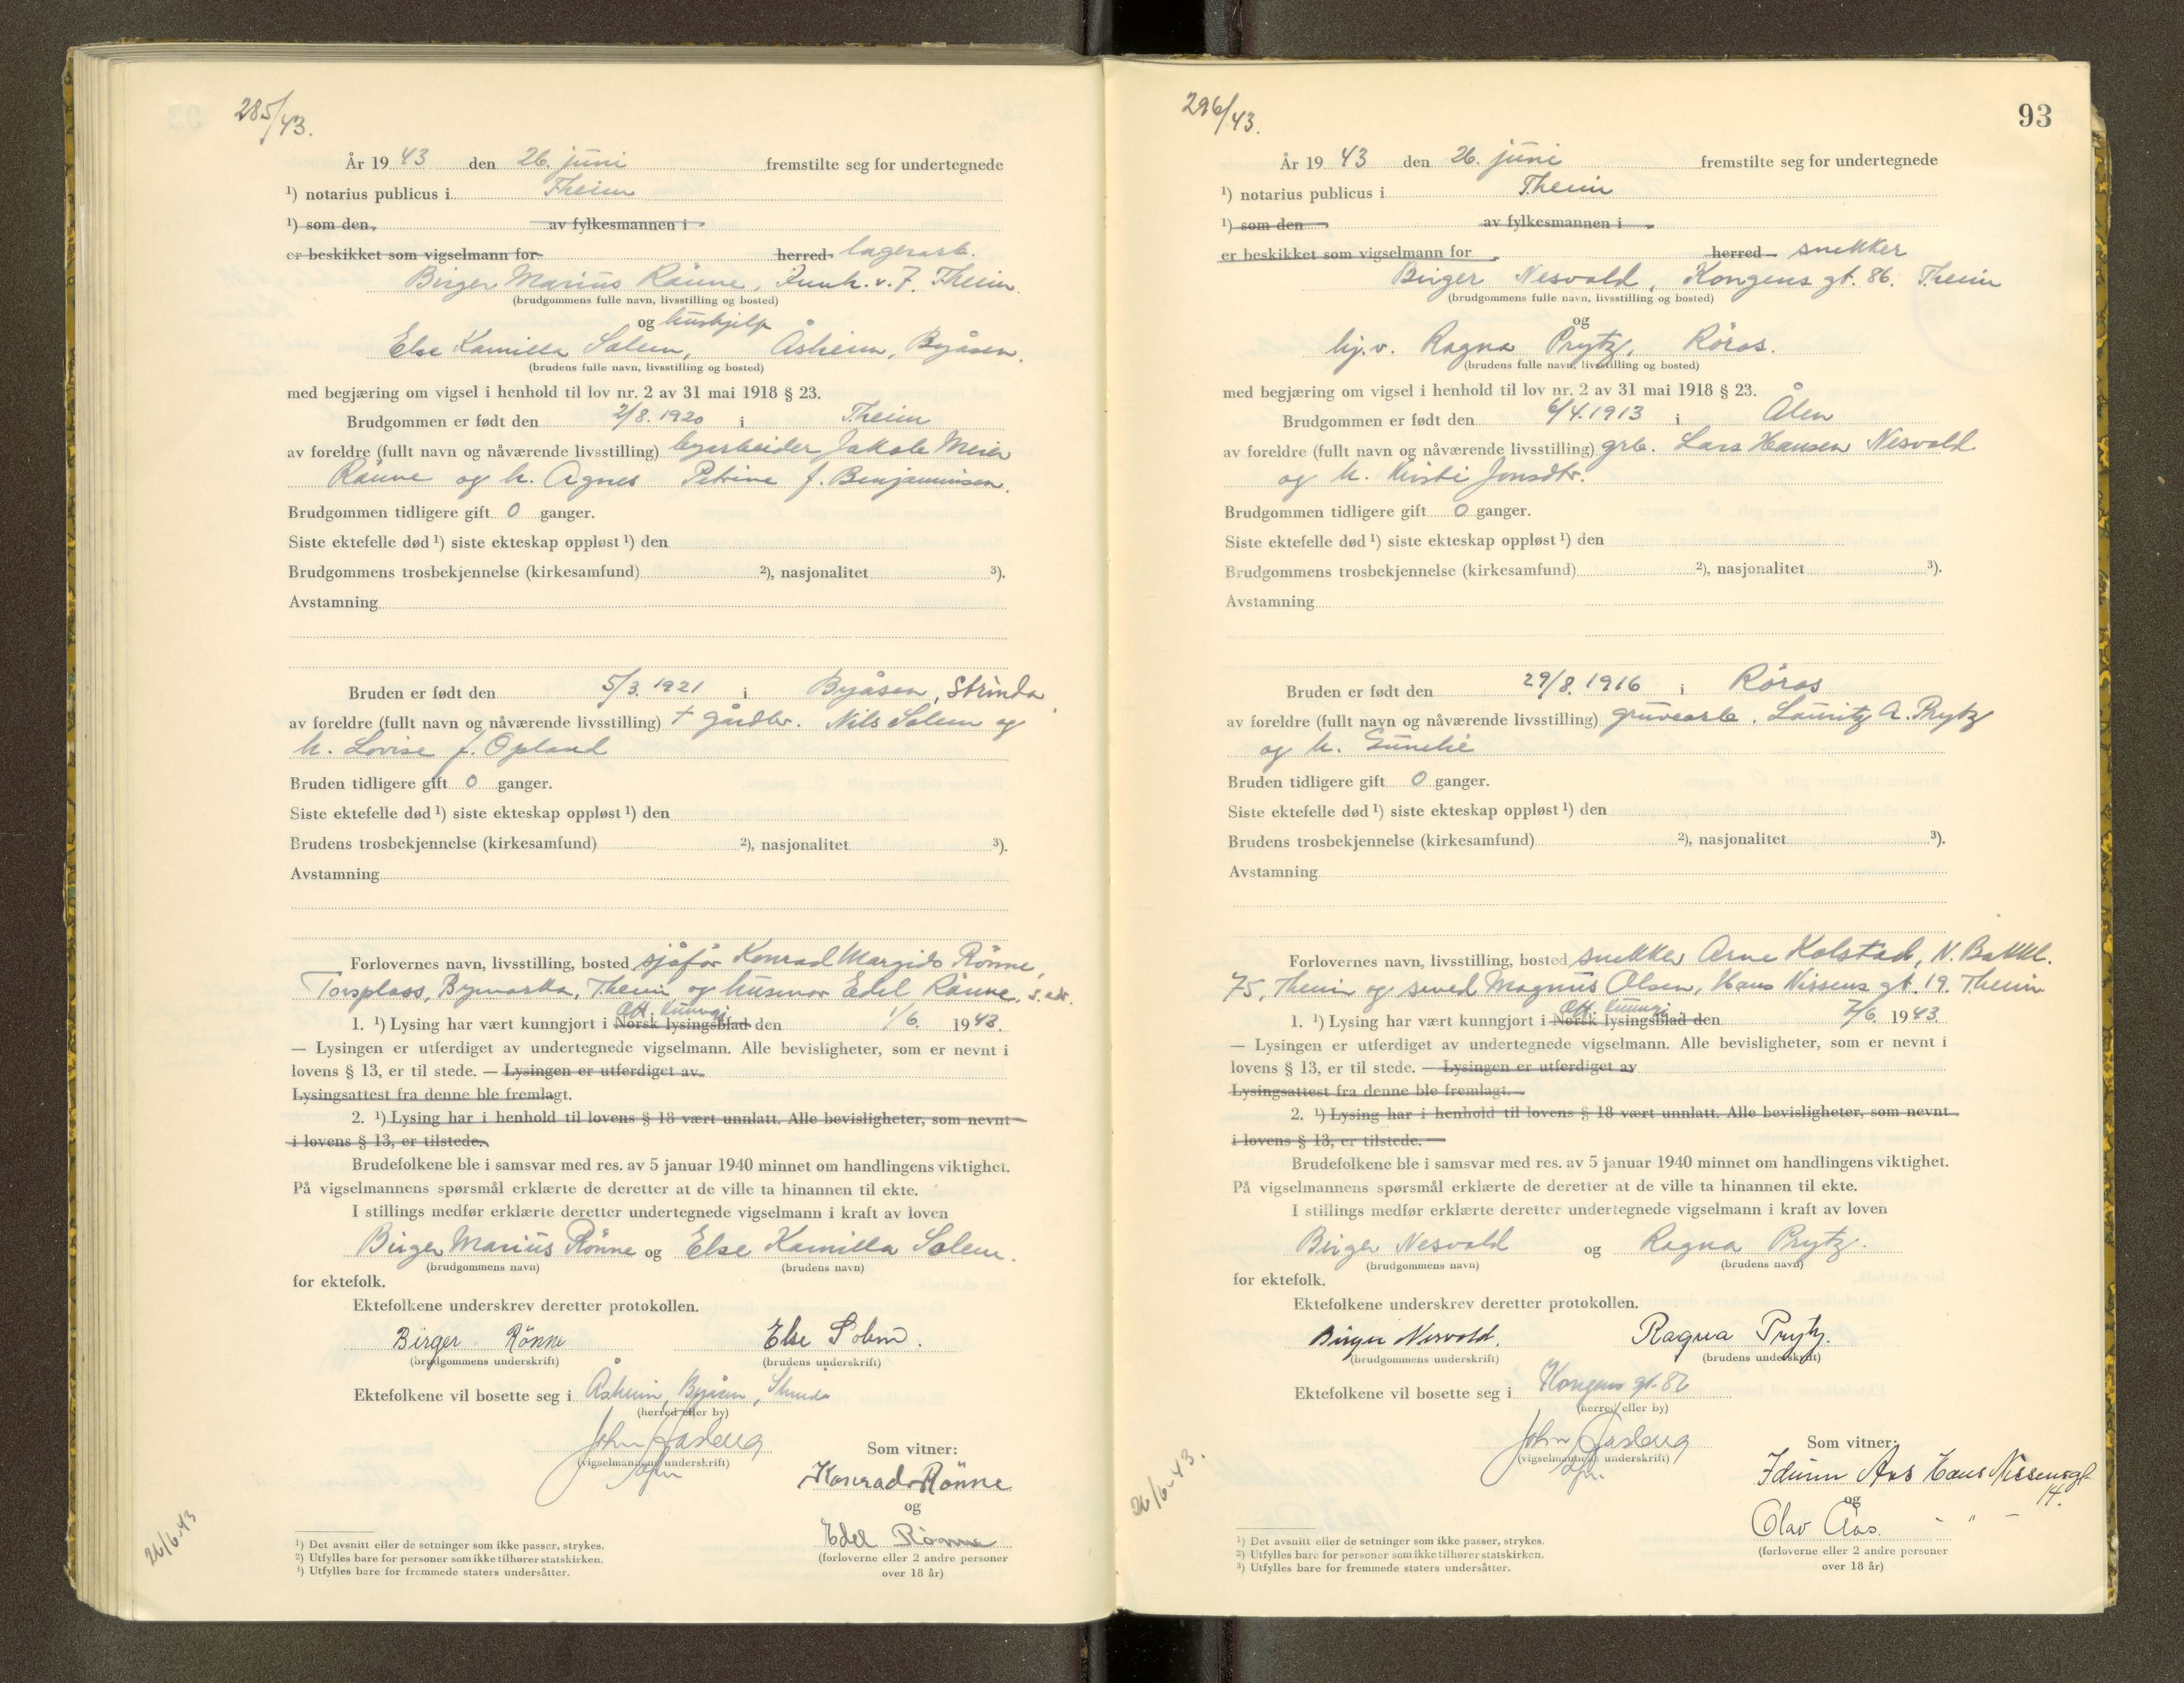 285/43.
År 19 43 den 26. juni fremstilte seg for undertegnede
¹) notarius publicus i Theim
¹) som den, av fylkesmannen i
er beskikket som vigselmann for herred lagerarb.
Birger Marius Rönne, v. 7. Theim.
(brudgommens fulle navn, livsstilling og bosted)
og hushjelp
Else Kamilla Solem, Åsheim, Byåsen.
(brudens fulle navn, livsstilling og bosted)
med begjæring om vigsel i henhold til lov nr. 2 av 31 mai 1918 § 23.
Brudgommen er født den 2/8. 1920 i Theim
av foreldre (fullt navn og nåværende livsstilling) Jakob Meier
Rönne og h. Agnes Petrine f. Benjaminsen.
Brudgommen tidligere gift 0 ganger.
Siste ektefelle død ¹) siste ekteskap oppløst ¹) den
Brudgommens trosbekjennelse (kirkesamfund) ²), nasjonalitet ³).
Avstamning
Bruden er født den 5/3. 1921 i Byåsen, Strinda
av foreldre (fullt navn og nåværende livsstilling) + gårdbr. Nils Solem og
h. Lovise f. Opland
Bruden tidligere gift 0 ganger.
Siste ektefelle død ¹) siste ekteskap oppløst ¹) den
Brudens trosbekjennelse (kirkesamfund) ²), nasjonalitet ³).
Avstamning
Forlovernes navn, livsstilling, bosted sjåfør Konrad Margido Rönne,
Torsplass, Bymarka, Theim og husmor Edel Rönne, s. adr.
Off. kunngj.
1. ¹) Lysing har vært kunngjort i Norsk lysingsblad den 1/6. 1943.
— Lysingen er utferdiget av undertegnede vigselmann. Alle bevisligheter, som er nevnt i
lovens § 13, er til stede. — Lysingen er utferdiget av
Lysingsattest fra denne ble fremlagt.
2. ¹) Lysing har i henhold til lovens § 18 vært unnlatt. Alle bevisligheter, som nevnt
i lovens § 13, er tilstede.
Brudefolkene ble i samsvar med res. av 5 januar 1940 minnet om handlingens viktighet.
På vigselmannens spørsmål erklærte de deretter at de ville ta hinannen til ekte.
I stillings medfør erklærte deretter undertegnede vigselmann i kraft av loven
Birger Marius Rönne og Else Kamilla Solem.
(brudgommens navn) (brudens navn)
for ektefolk.
Ektefolkene underskrev deretter protokollen.
Birger Rönne Else Solem.
(brudgommens underskrift) (brudens underskrift)
Ektefolkene vil bosette seg i Åsheim, Byåsen, Strinda
(herred eller by)
John Aasberg
(vigselmannens underskrift)
Som vitner:
Konrad Rönne
og
Edel Rönne
(forloverne eller 2 andre personer
over 18 år)
26/6-43
¹) Det avsnitt eller de setninger som ikke passer, strykes.
²) Utfylles bare for personer som ikke tilhører statskirken.
³) Utfylles bare for fremmede staters undersåtter.
296/43.
93
År 19 43 den 26. juni fremstilte seg for undertegnede
¹) notarius publicus i Theim
¹) som den av fylkesmannen i
er beskikket som vigselmann for herred snekker
Birger Nesvold, Kongens gt. 86. Theim
(brudgommens fulle navn, livsstilling og bosted)
og
hj.v. Ragna Prytz, Röros.
(brudens fulle navn, livsstilling og bosted)
med begjæring om vigsel i henhold til lov nr. 2 av 31 mai 1918 § 23.
Brudgommen er født den 6/4.1913 i Ålen
av foreldre (fullt navn og nåværende livsstilling) grb. Lars Hansen Nesvold
og h. Kirsti Jonsdtr.
Brudgommen tidligere gift 0 ganger.
Siste ektefelle død ¹) siste ekteskap oppløst ¹) den
Brudgommens trosbekjennelse (kirkesamfund) ²), nasjonalitet ³).
Avstamning
Bruden er født den 29/8. 1916 i Röros
av foreldre (fullt navn og nåværende livsstilling) gruvearb. Lauritz A. Prytz
og h. Gunelie
Bruden tidligere gift 0 ganger.
Siste ektefelle død ¹) siste ekteskap oppløst ¹) den
Brudens trosbekjennelse (kirkesamfund) ²), nasjonalitet ³).
Avstamning
Forlovernes navn, livsstilling, bosted snekker Arne Kolstad, N. Bakkl.
75, Theim og smed Magnus Olsen, Hans Nissens gt. 19. Theim
Off. kunngj.
1. ¹) Lysing har vært kunngjort i Norsk lysingsblad den 7/6. 1943.
— Lysingen er utferdiget av undertegnede vigselmann. Alle bevisligheter, som er nevnt i
lovens § 13, er til stede. — Lysingen er utferdiget av
Lysingsattest fra denne ble fremlagt.
2. ¹) Lysing har i henhold til lovens § 18 vært unnlatt. Alle bevisligheter, som nevnt
i lovens § 13, er tilstede.
Brudefolkene ble i samsvar med res. av 5 januar 1940 minnet om handlingens viktighet.
På vigselmannens spørsmål erklærte de deretter at de ville ta hinannen til ekte.
I stillings medfør erklærte deretter undertegnede vigselmann i kraft av loven
Birger Nesvold og Ragna Prytz.
(brudgommens navn) (brudens navn)
for ektefolk.
Ektefolkene underskrev deretter protokollen.
Birger Nesvold. Ragna Prytz.
(brudgommens underskrift) (brudens underskrift)
Ektefolkene vil bosette seg i Kongens gt. 86
(herred eller by)
John Aasberg
(vigselmannens underskrift)
Som vitner:
Idunn Aas Hans Nissensgt
14.
og
Olav Aas. - " -
(forloverne eller 2 andre personer
over 18 år)
26/6-43.
¹) Det avsnitt eller de setninger som ikke passer, strykes.
²) Utfylles bare for personer som ikke tilhører statskirken.
³) Utfylles bare for fremmede staters undersåtter.